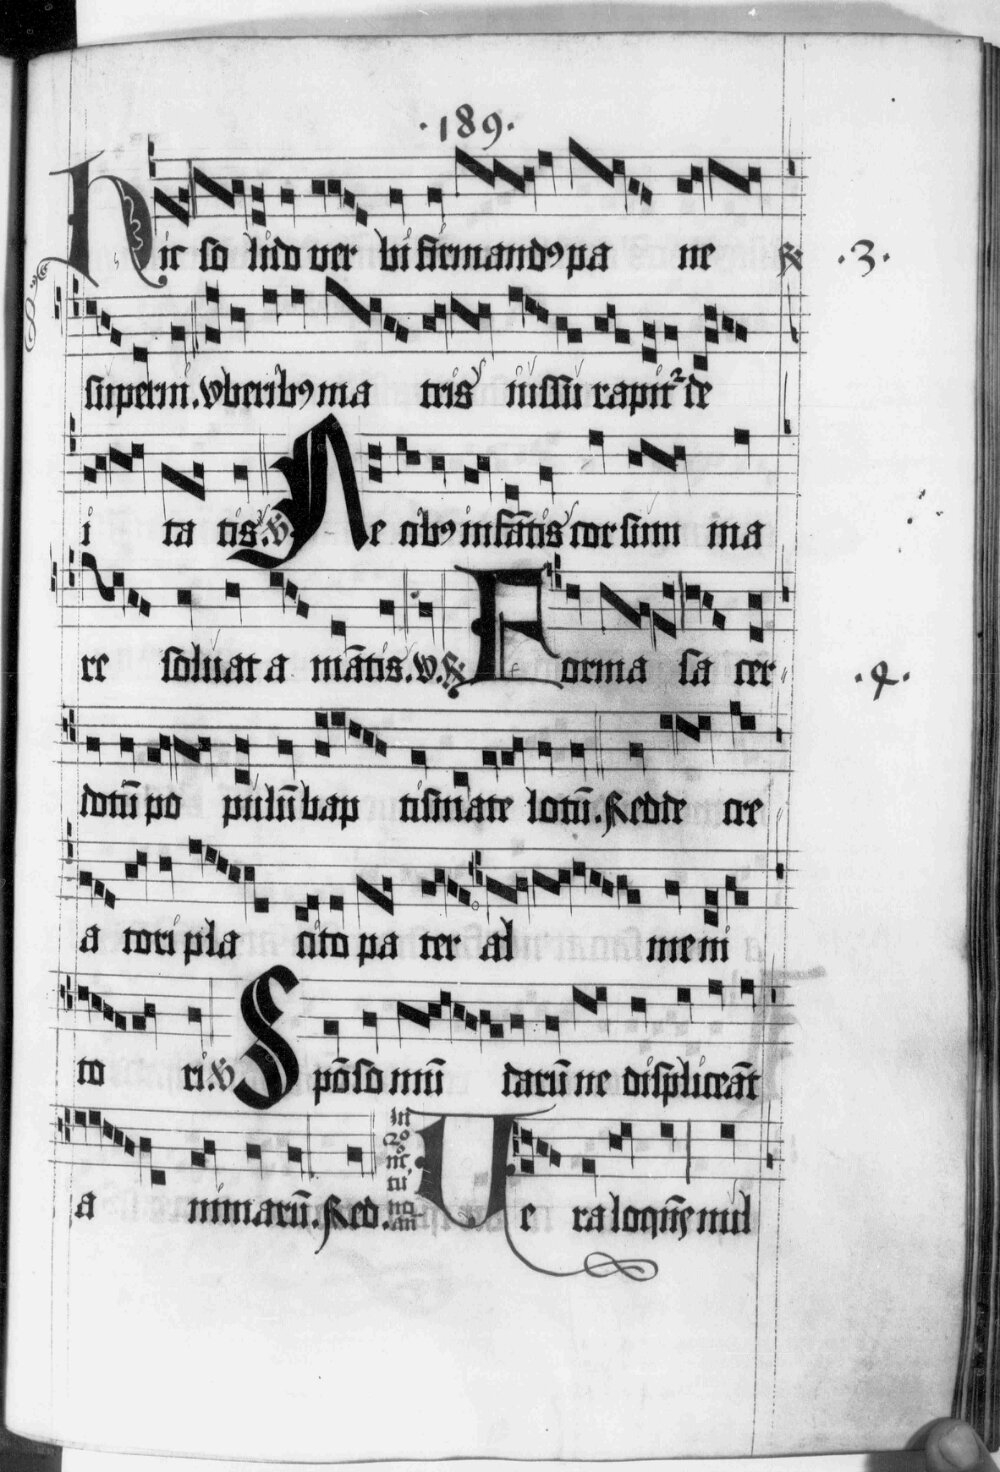 ·189·
Hic so lido ver bi firmandꝯ pa ne ℟ ·3·
superni. Vberibꝯ ma tris iussu rapitᷣ de
i ta tis. ℣. Ne cibꝯ infātis cor sum ma
re soluat a mātis. V. ℟ Forma sa cer ·4·
dotū po pulū bap tismate lotū. Redde cre
a tori pla cito pa ter al me ni
to ri. ℣ Spōso mūdarū ne displiceāt
a nimarū. Red. In Ve ra loquēs nul